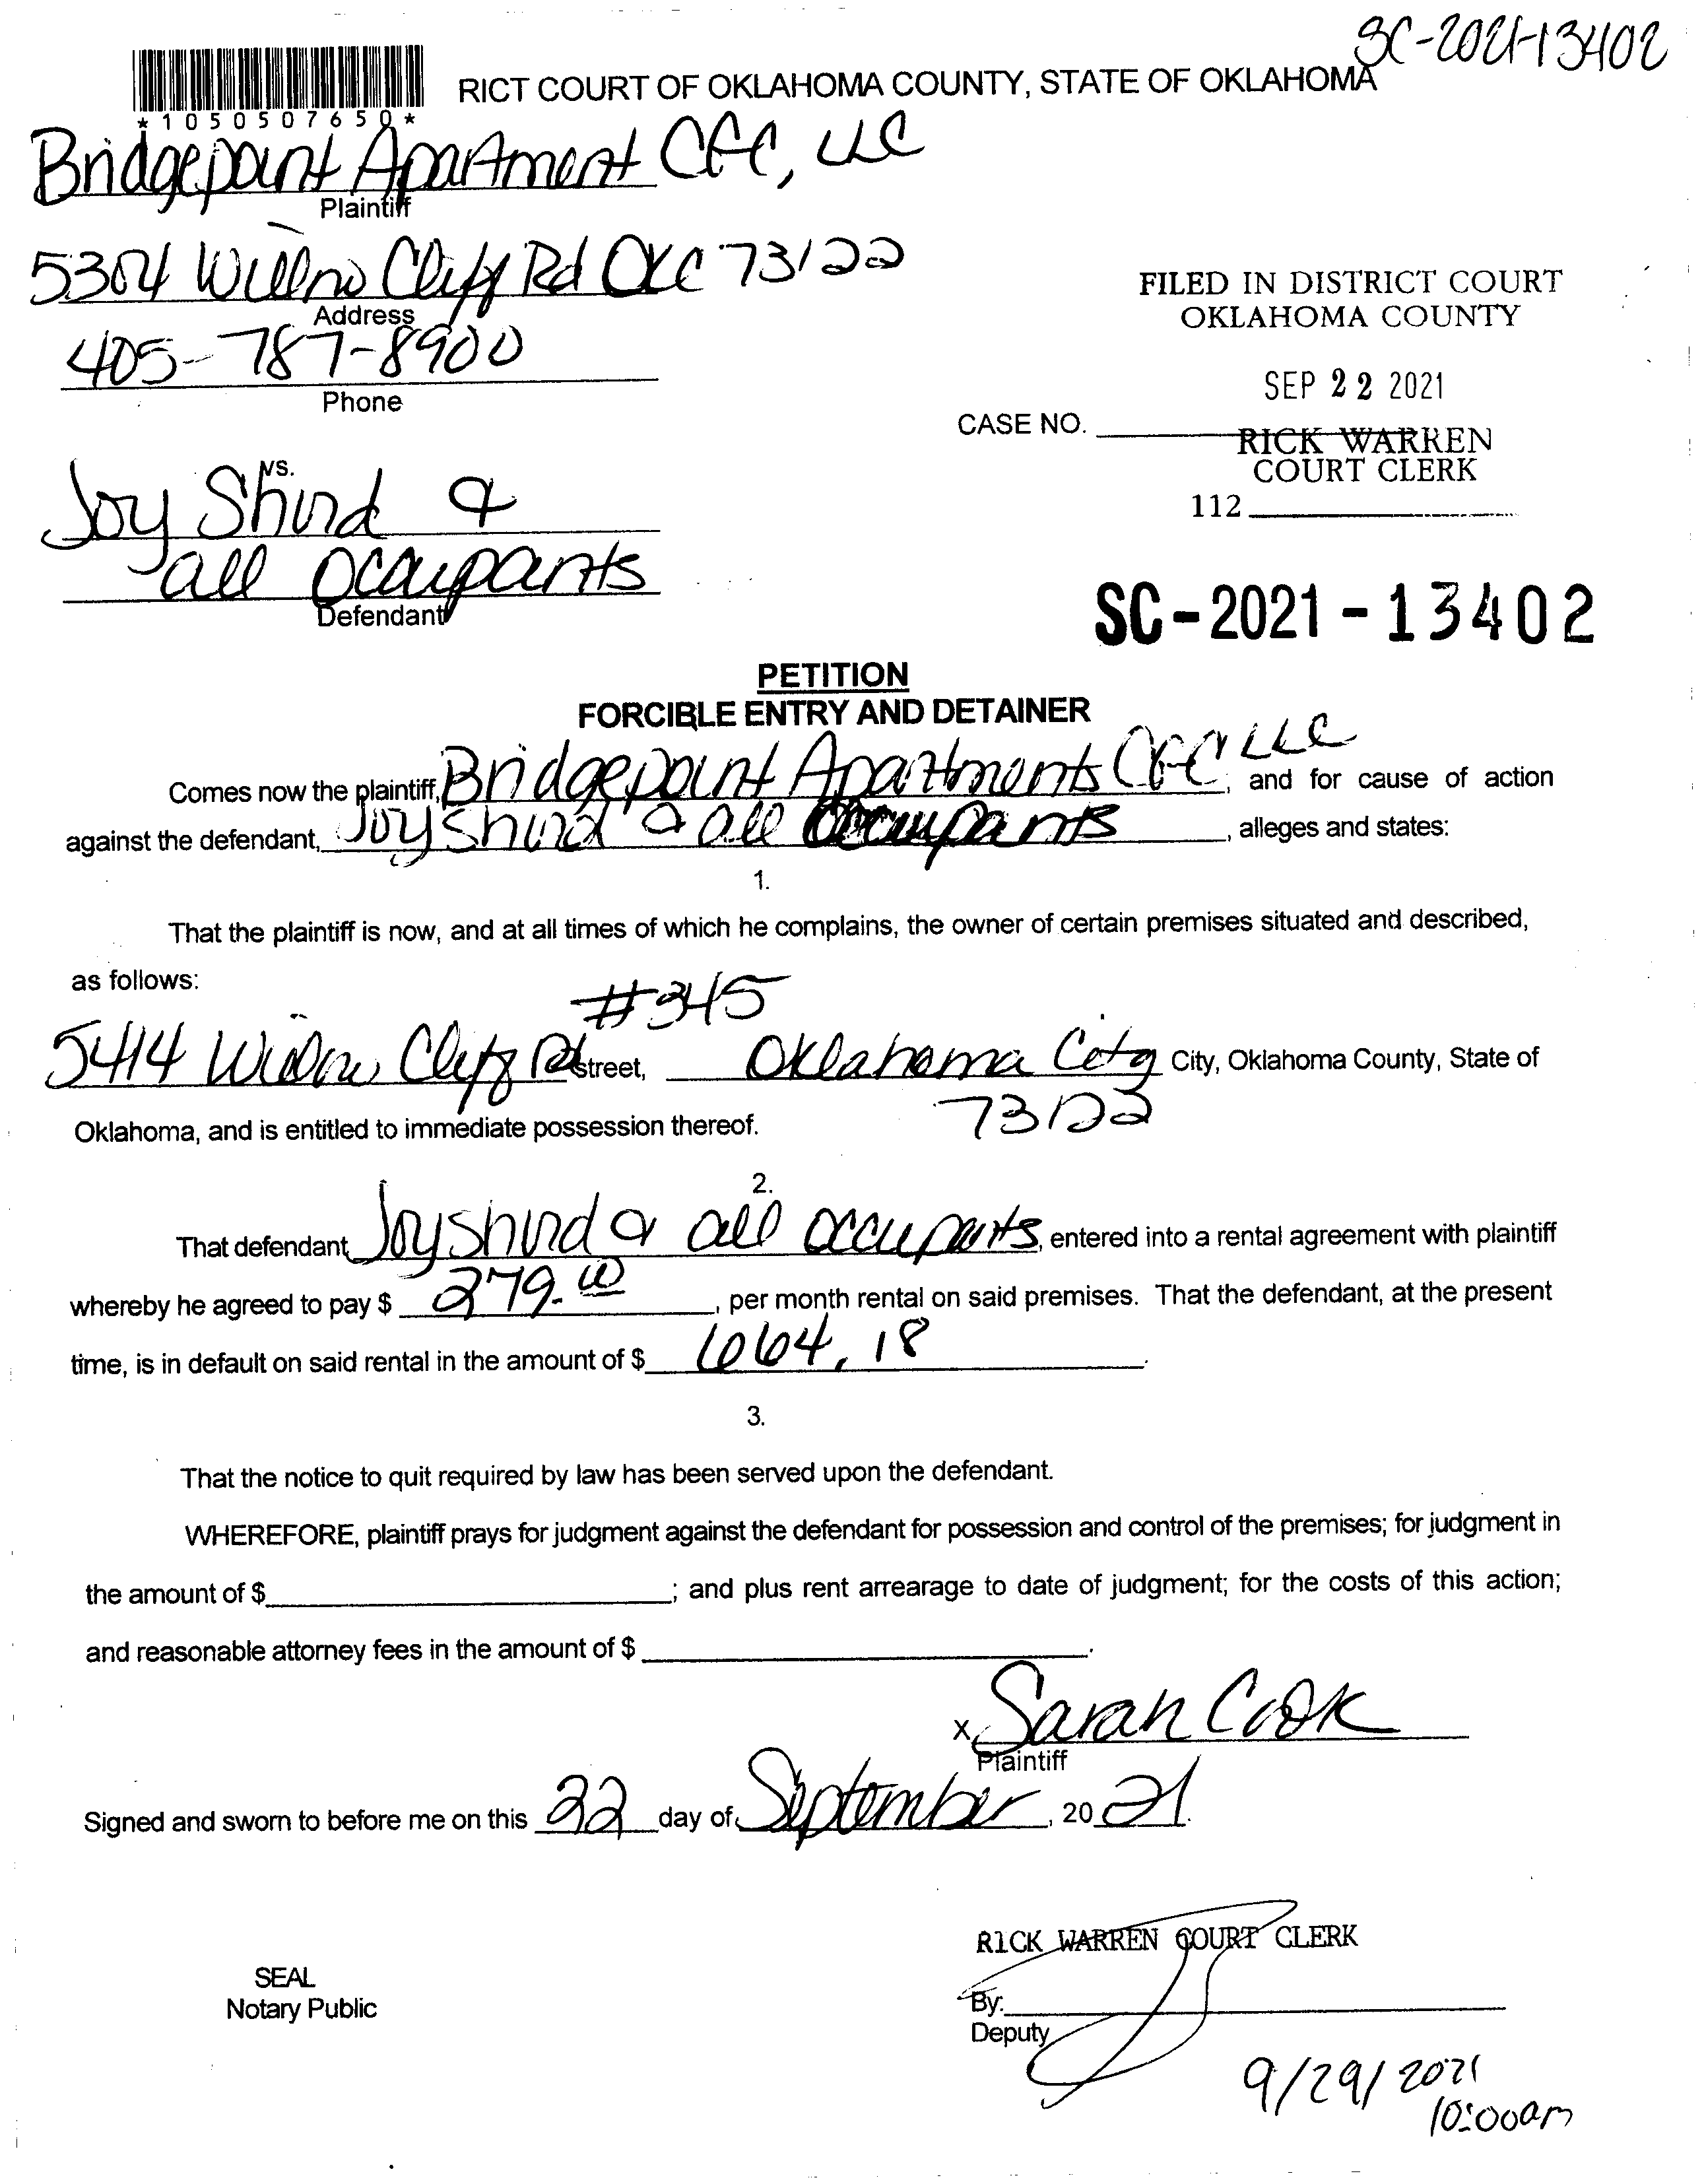 SC-2021-13402
RICT COURT OF OKLAHOMA COUNTY, STATE OF OKLAHOMA
*1050507650*
Bridgepoint Apartment CFC, LLC
Plaintiff
5304 Willow Cliff Rd OKC 73122
Address
405-787-8900
Phone
FILED IN DISTRICT COURT
OKLAHOMA COUNTY
SEP 22 2021
CASE NO.
RICK WARREN
COURT CLERK
112
vs.
Joy Shurd &
all occupants
Defendant
SC-2021-13402
PETITION
FORCIBLE ENTRY AND DETAINER
Comes now the plaintiff, Bridgepoint Apartments CFC LLC, and for cause of action
against the defendant, Joy Shurd & all Occupants, alleges and states:
1.
That the plaintiff is now, and at all times of which he complains, the owner of certain premises situated and described,
as follows:
#345
5414 Willow Cliff Rd Street, Oklahoma City City, Oklahoma County, State of
73122
Oklahoma, and is entitled to immediate possession thereof.
2.
That defendant Joy Shurd & all occupants, entered into a rental agreement with plaintiff
whereby he agreed to pay $ 279.00, per month rental on said premises. That the defendant, at the present
time, is in default on said rental in the amount of $ 664.18.
3.
That the notice to quit required by law has been served upon the defendant.
WHEREFORE, plaintiff prays for judgment against the defendant for possession and control of the premises; for judgment in
the amount of $ ; and plus rent arrearage to date of judgment; for the costs of this action;
and reasonable attorney fees in the amount of $ .
X Sarah Cook
Plaintiff
Signed and sworn to before me on this 22 day of September, 2021.
RICK WARREN COURT CLERK
SEAL
Notary Public
By:
Deputy
9/29/2021
10:00am